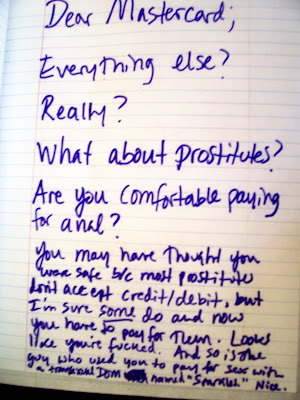 Dear Mastercard;
Everything else?
Really?
What about prostitutes?
Are you comfortable paying
for anal?
You may have thought you
were safe b/c most prostitutes
don't accept credit/debit, but
I'm sure some do and now
you have to pay for them. Looks
like you're fucked. And so is the
guy who used you to pay for sex with
a transexual Dom named "Sparkles." Nice.